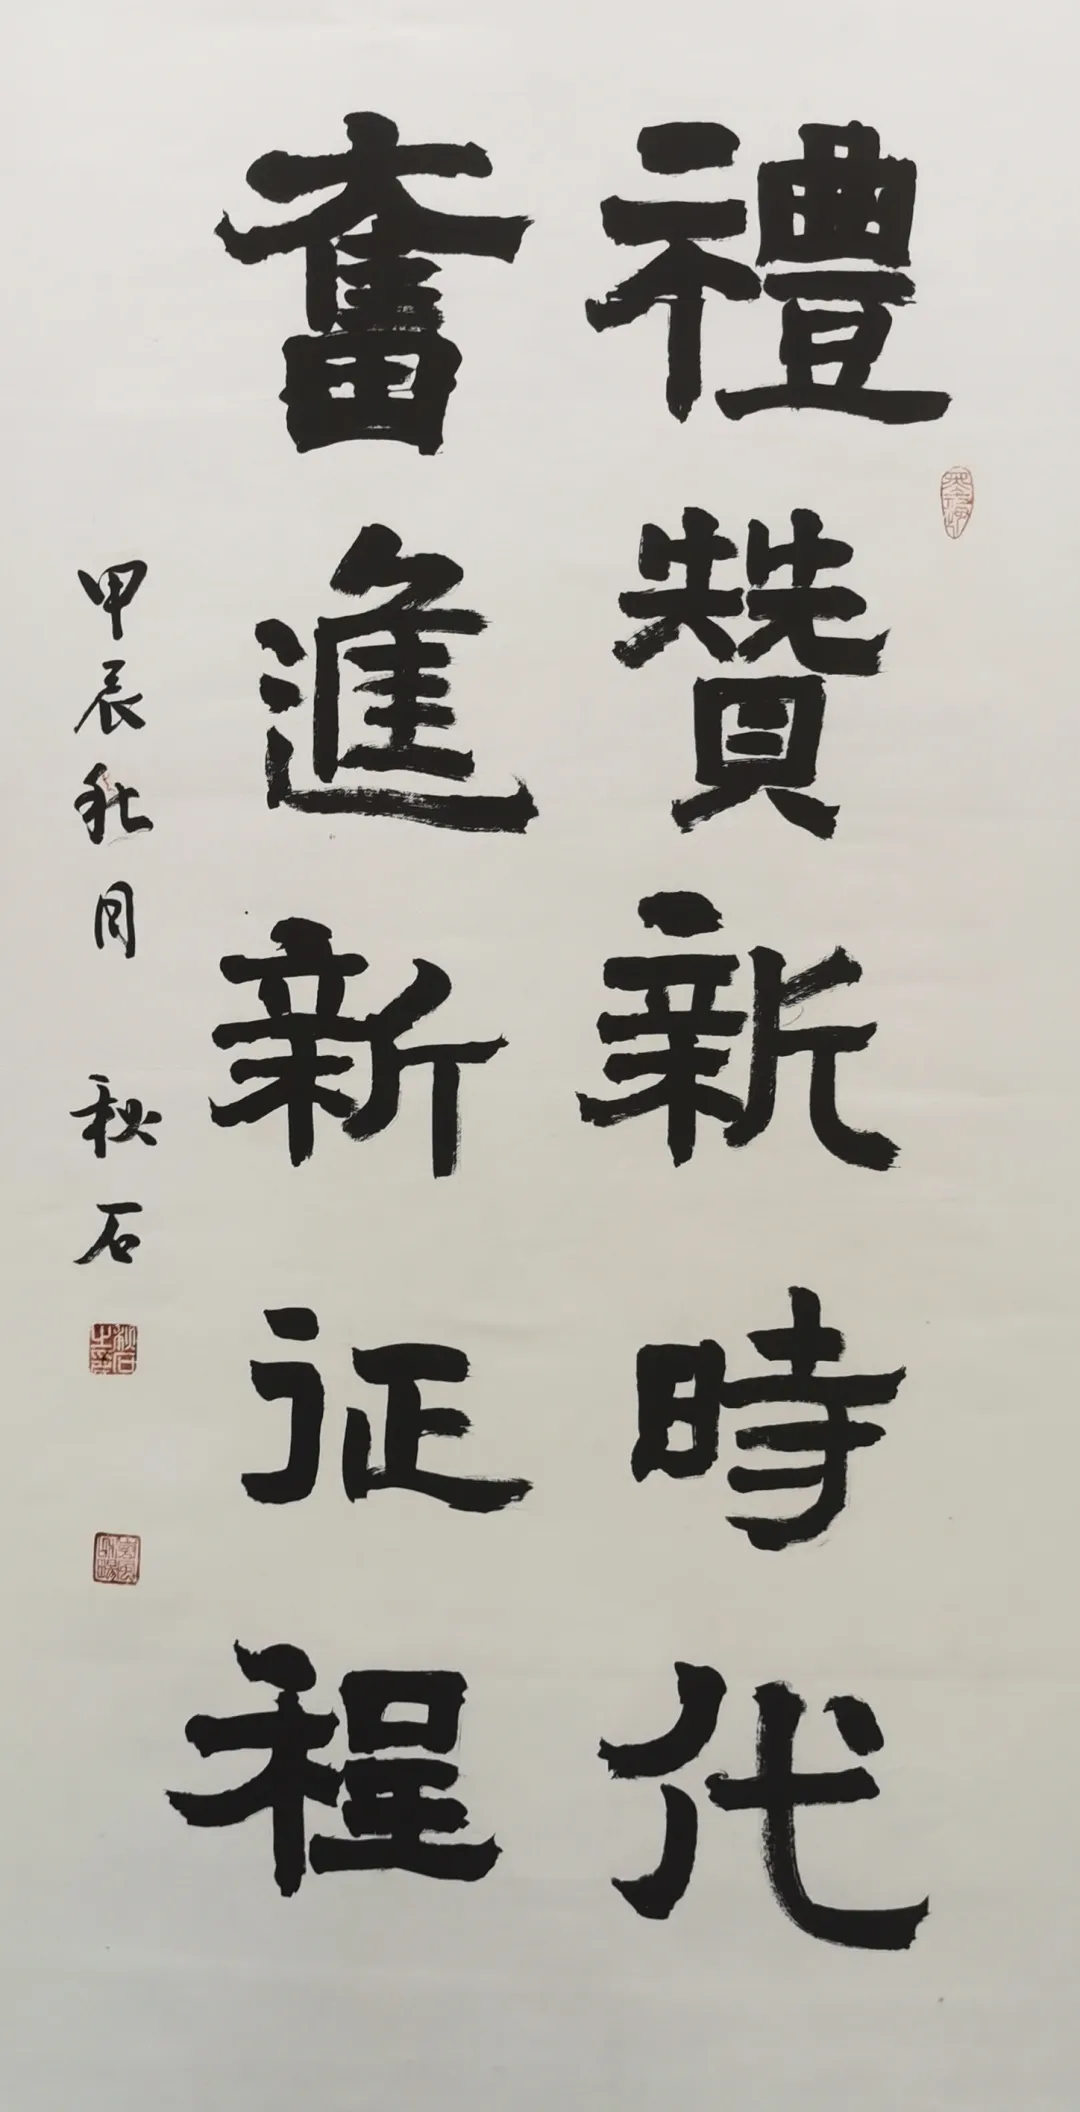 禮贊新時代
奮進新征程
甲辰秋月 秋石